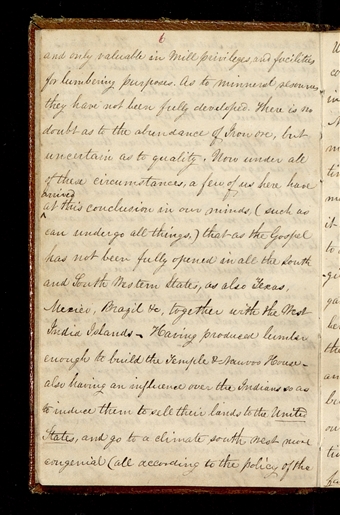 6
and only valuable in Mill privileges, and facilities
for lumbering purposes. As to mineral resources,
they have not been fully developed. There is no
doubt as to the abundance of Iron ore, but
uncertain as to quality. Now under all
of these circumstances, a few of us here have
arrived
at this conclusion in our minds, (such as
can undergo all things,) that as the Gospel
has not been fully opened in all the South
and South Western States, as also Texas,
Mexico, Brazil &c, together with the West
India Islands - Having produced lumber
enough to build the Temple & Nauvoo House -
also having an influence over the Indians so as
to induce them to sell their lands to the United
States, and go to a climate south west more
congenial (all according to the policy of the